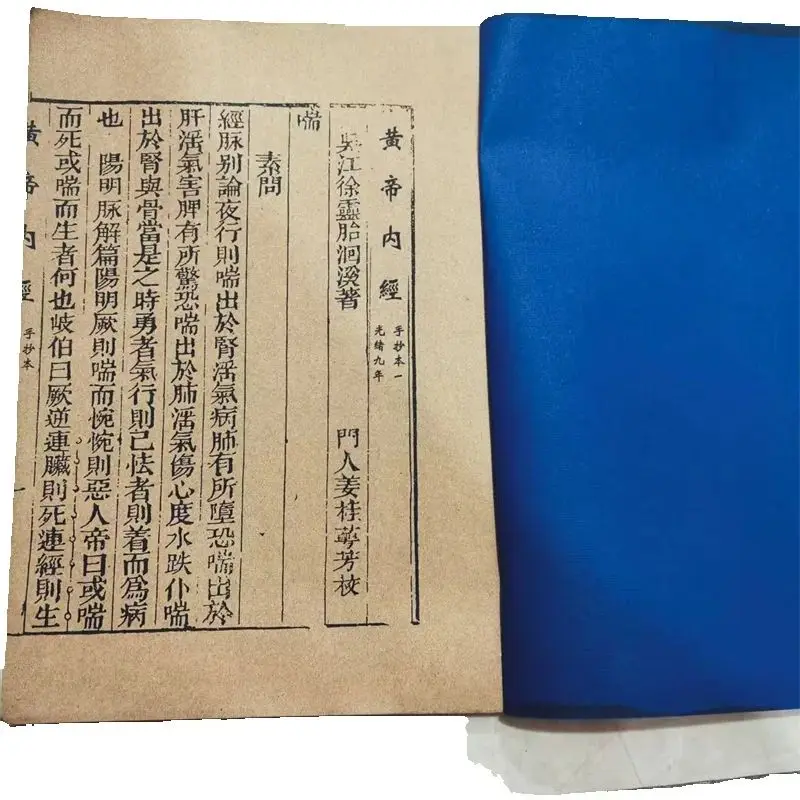 黃帝内經
手抄本一
光緒九年
吳江徐靈胎洄溪著 門人姜桂蕚芳校
喘
素問
經脉别論夜行則喘出於腎滛氣病肺有所墮恐喘出於
肝滛氣害脾有所驚恐喘出於肺滛氣傷心度水跌仆喘
出於腎與骨當是之時勇者氣行則已怯者則着而為病
也 陽明脉解篇陽明厥則喘而惋惋則惡人帝曰或喘
而死或喘而生者何也岐伯曰厥逆連臟則死連經則生
黃帝内經 手抄本 一